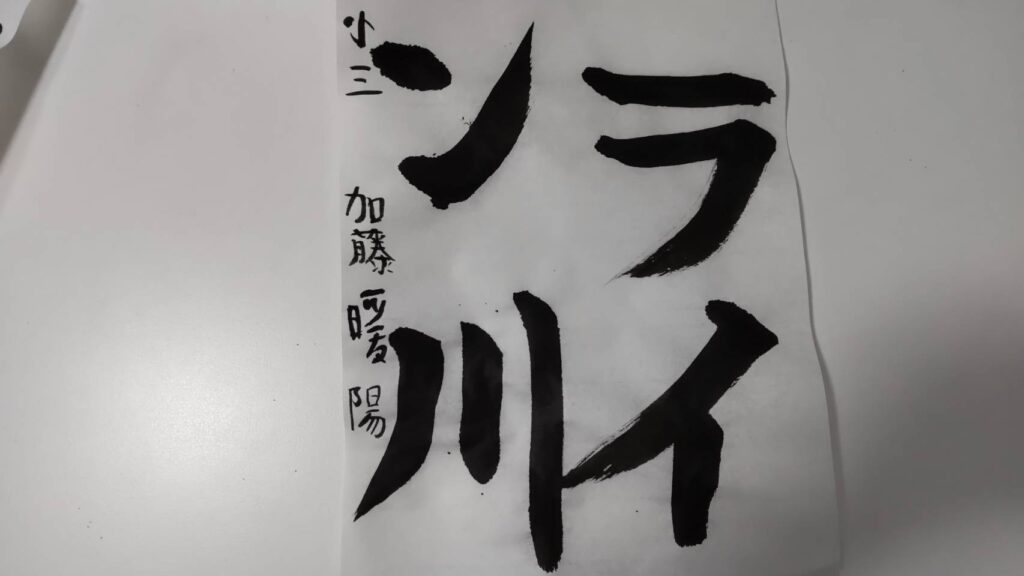 ライ
ン川
小三 加藤暖陽